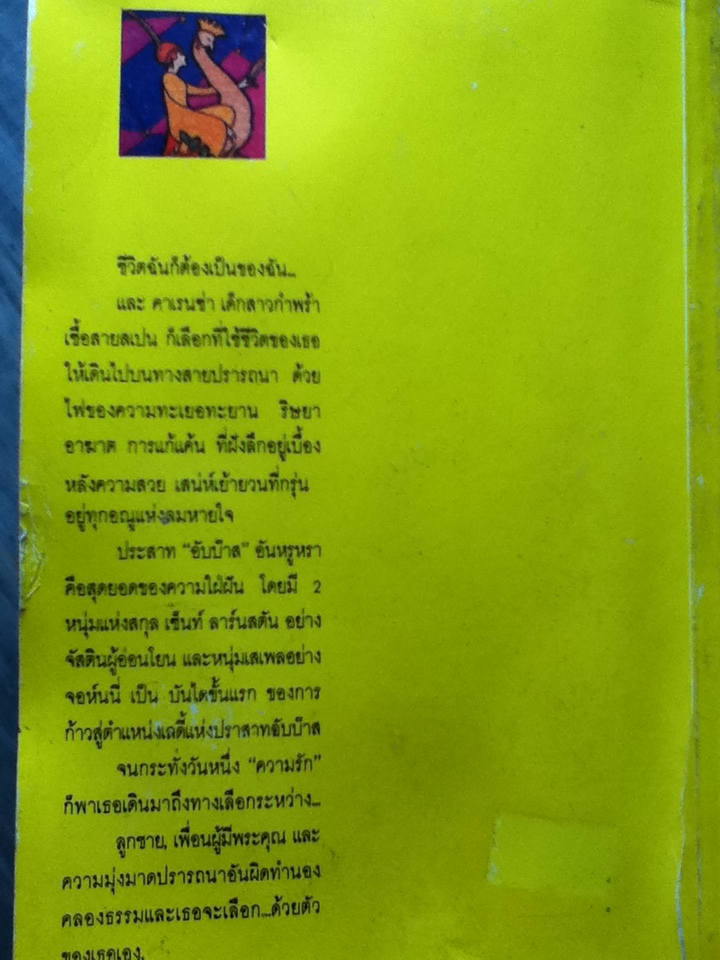 ชีวิตฉันก็ต้องเป็นของฉัน...
และ คาเรนซ่า เด็กสาวกำพร้า
เชื้อสายสเปน ก็เลือกที่ใช้ชีวิตของเธอ
ให้เดินไปบนทางสายปรารถนา ด้วย
ไฟของความทะเยอทะยาน ริษยา
อาฆาต การแก้แค้น ที่ฝังลึกอยู่เบื้อง
หลังความสวย เสน่ห์เย้ายวนที่กรุ่น
อยู่ทุกอณูแห่งลมหายใจ
ประสาท “อับบ๊าส” อันหรูหรา
คือสุดยอดของความใฝ่ฝัน โดยมี 2
หนุ่มแห่งสกุล เซ็นท์ ลาร์นสตัน อย่าง
จัสตินผู้อ่อนโยน และหนุ่มเสเพลอย่าง
จอห์นนี่ เป็น บันไดขั้นแรก ของการ
ก้าวสู่ตำแหน่งเลดี้แห่งปราสาทอับบ๊าส
จนกระทั่งวันหนึ่ง “ความรัก”
ก็พาเธอเดินมาถึงทางเลือกระหว่าง...
ลูกชาย, เพื่อนผู้มีพระคุณ และ
ความมุ่งมาดปรารถนาอันผิดทำนอง
คลองธรรมและเธอจะเลือก...ด้วยตัว
ของเธอเอง.